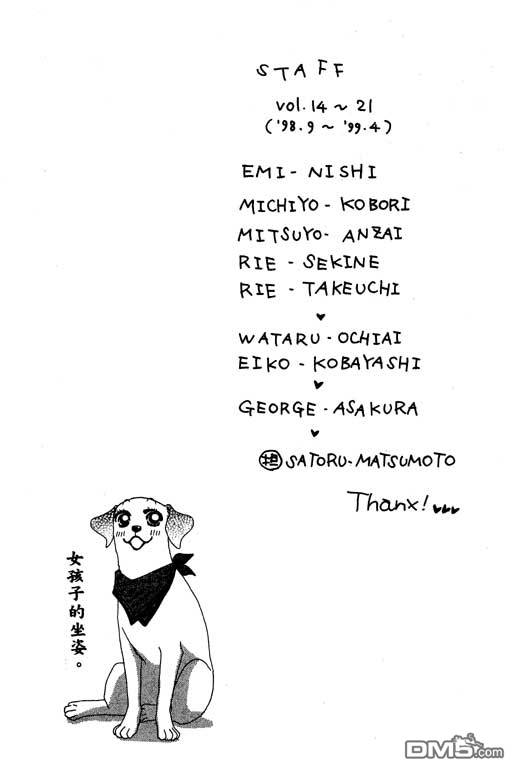 STAFF
vol.14～21
('98.9～'99.4)
EMI-NISHI
MICHIYO-KOBORI
MITSUYO-ANZAI
RIE-SEKINE
RIE-TAKEUCHI
WATARU-OCHIAI
EIKO-KOBAYASHI
GEORGE-ASAKURA
担 SATORU-MATSUMOTO
Thanx!
女孩子的坐姿。
DM5.com